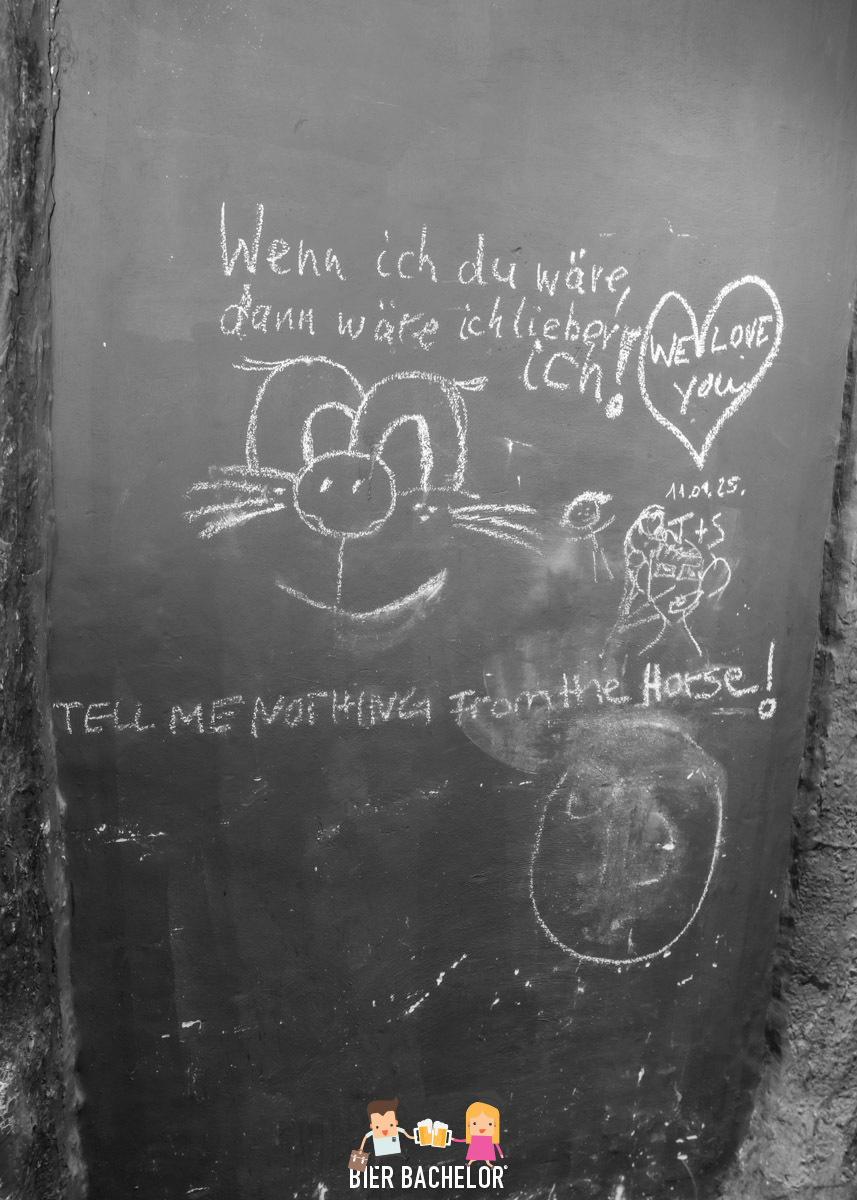 Wenn ich du wäre,
dann wäre ich lieber
ich!
WE LOVE
You
11.01.25.
J+S
TELL ME NOTHING from the Horse!
BIER BACHELOR